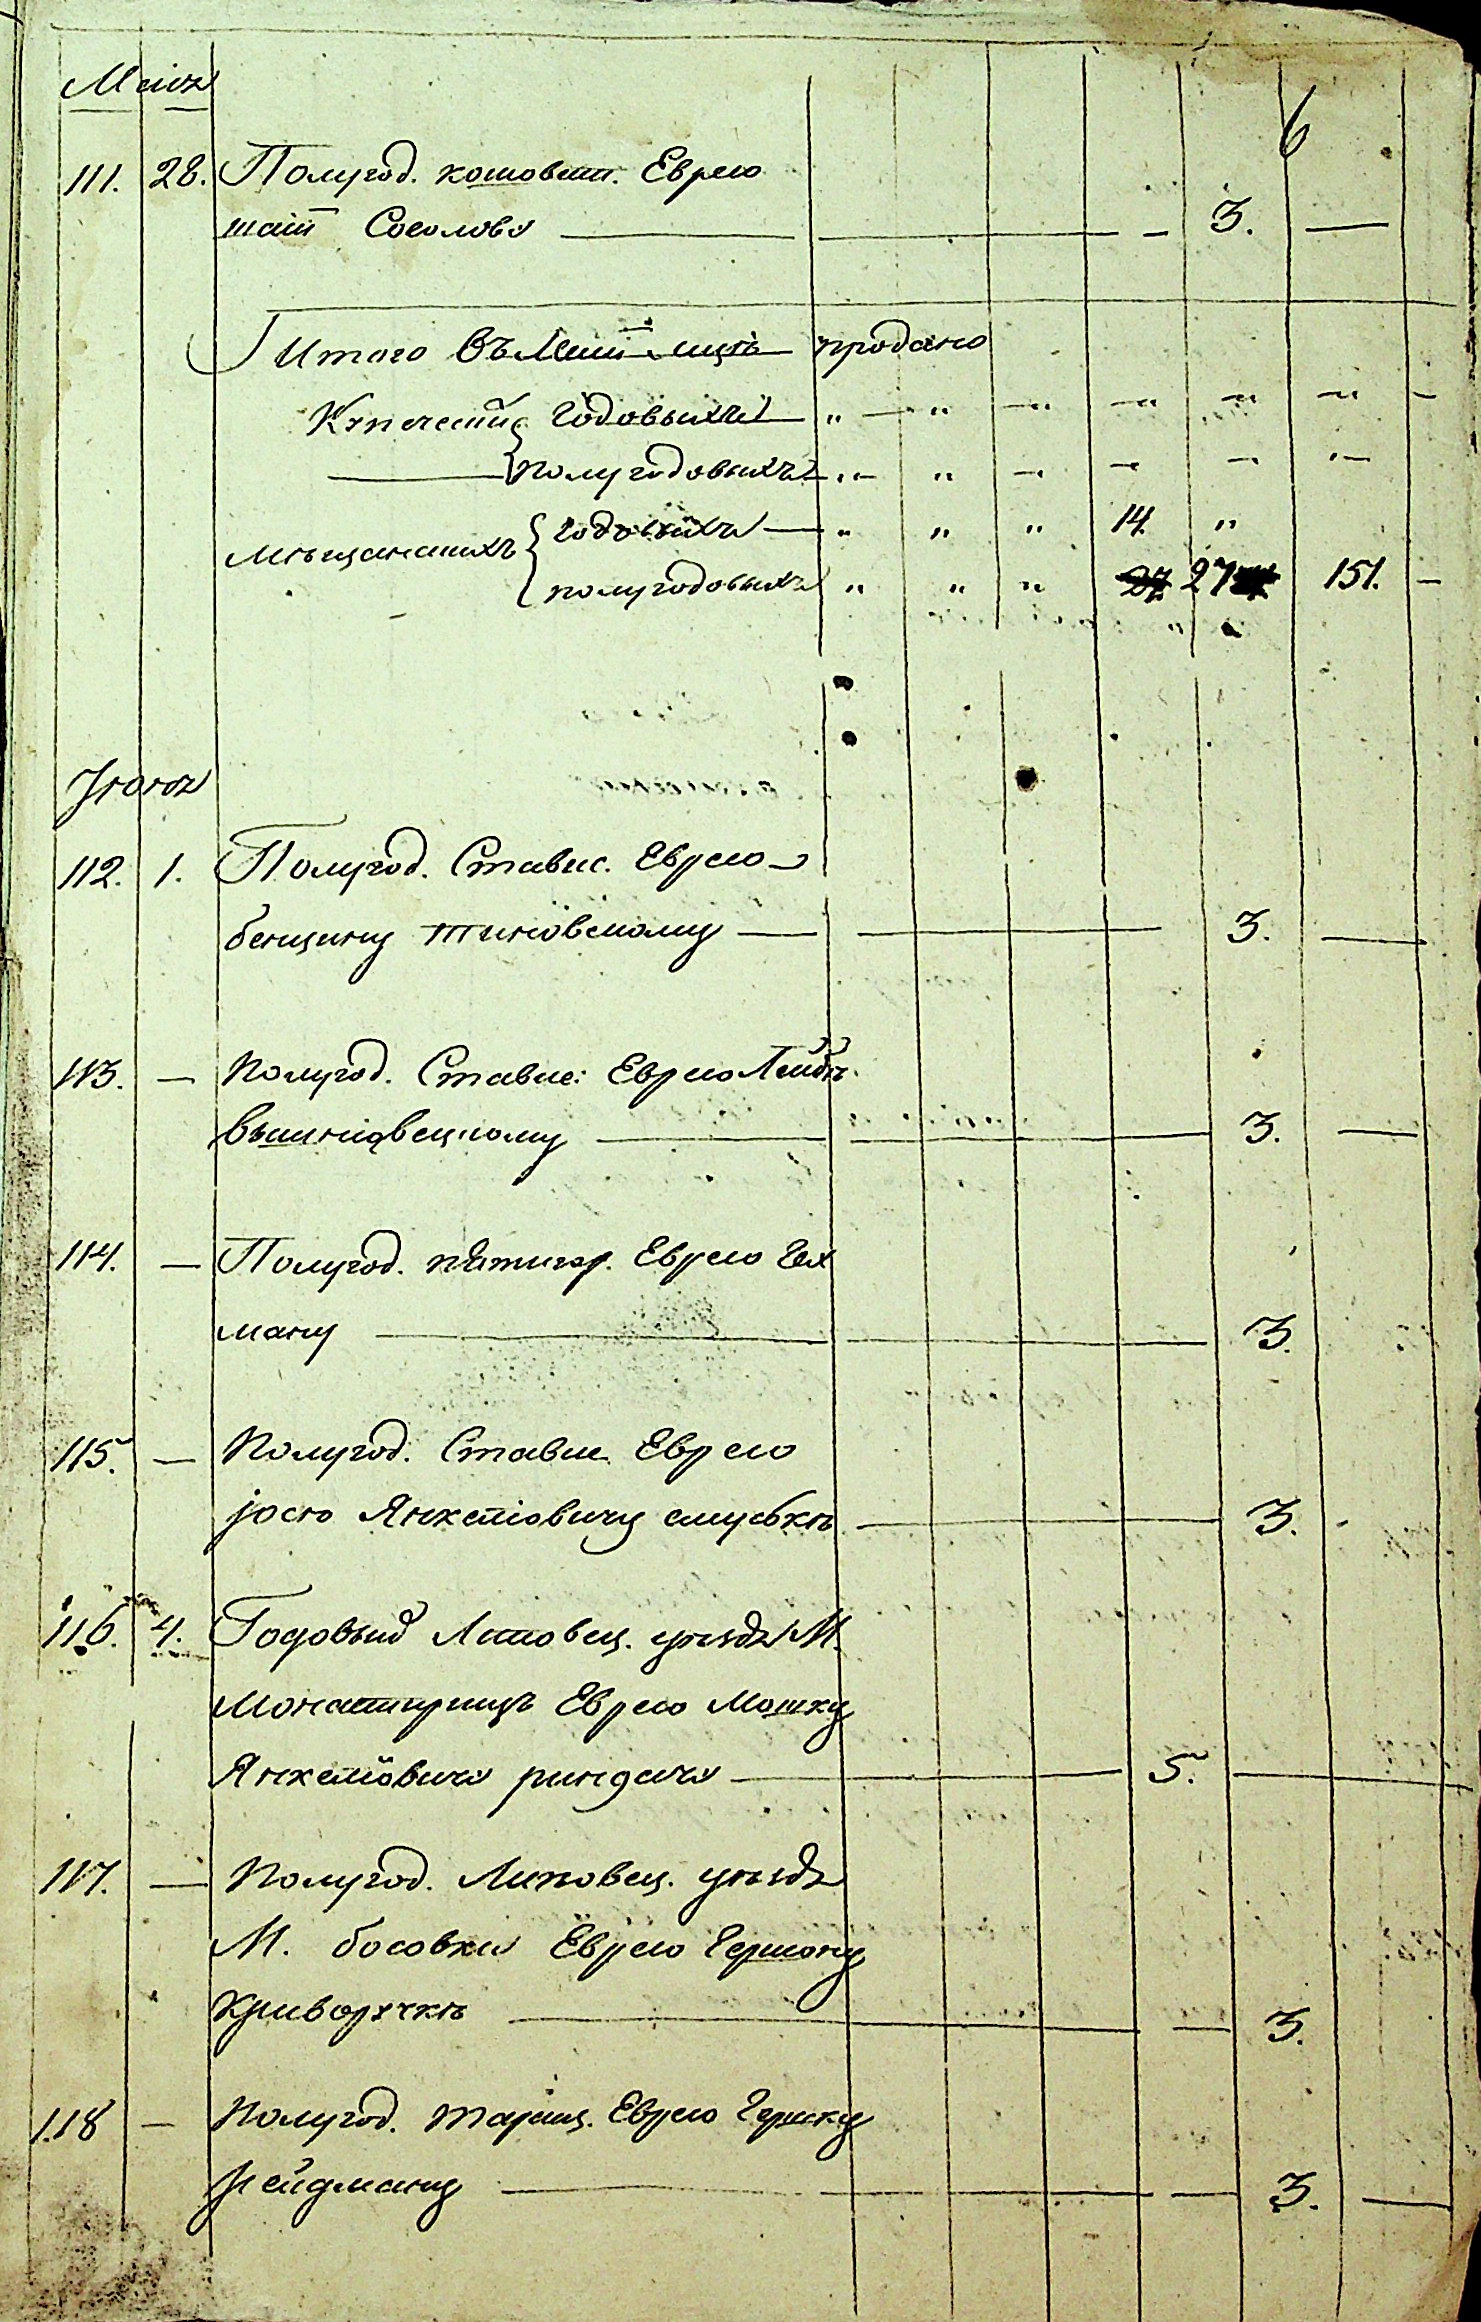 Маія
6
111. 28. Полугод. кошоват. Еврею
Соколову — 3. —
Итого въ Маіи м-цѣ продано
Купечески годовыхъ — „ — „ — „ — „ — „ — „ —
— полугодовыхъ — „ — „ — „ — „ — „ — „ —
Мѣщанскихъ годовыхъ — „ „ „ 14. „
полугодовыхъ „ „ „ 27 151. —
Іюня
112. 1. Полугод. Ставис. Еврею
бенциону Тиновскому — 3. —
113. — Полугод. Ставис: Еврею Лейбѣ
вышніовецкому — 3. —
114. — Полугод. пятигор. Еврею Гех
ману — 3.
115. — Полугод. Ставис Еврею
Іосю Янкеліовичу слубкѣ — 3.
116. 4. Годовый Липовец. уѣзда М.
Монастырищъ Еврею Мошку
Янкеліовичу риндачу — 5. —
117. — Полугод. Липовец. уѣзда
М. босовки Еврею Гершону
Криворучкѣ — 3.
118 — Полугод. таращ. Еврею Гершку
Рейдману — 3. —